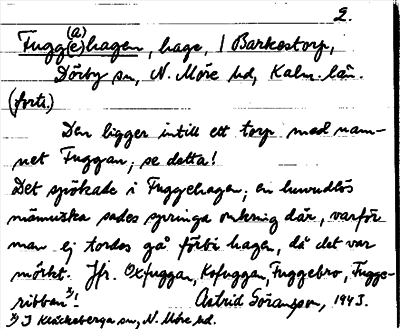 2.
Fugg(e)(a)hagen, hage, 1 Barkestorp,
Dörby sn, N. Möre hd, Kalm. län.
(forts.)
Den ligger intill ett torp med nam-
net Fuggan; se detta!
Det spökade i Fuggehagen; en huvudlös
människa sades springa omkring där, varför
man ej tordes gå förbi hagen, då det var
mörkt. Jfr. Oxfuggan, Kofuggan, Fuggebro, Fugge-
ribban x)!
Astrid Göransson, 1943.
x) I Kläckeberga sn, N. Möre hd.